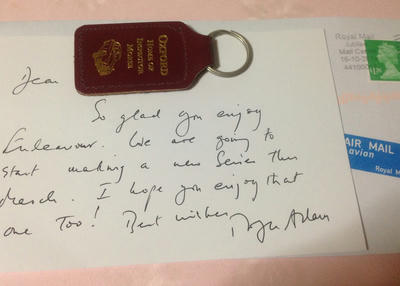 OXFORD
HOME OF
INSPECTOR
MORSE
Royal Mail
Jubilee
Mail Ce
16-10-2
Dear
So glad you enjoy
Endeavour. We are going to
start making a new Series this
March. I hope you enjoy that
one Too! Best wishes
Roger Allam
AIR MAIL
avion
Royal M